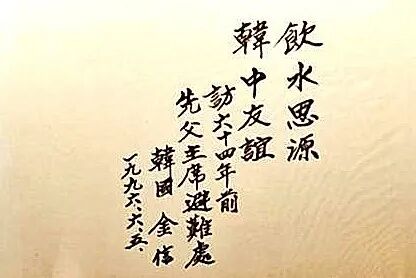 飲水思源
韓中友誼
訪六十四年前
先父主席避難處
韓國 金信
一九九六、六、五、